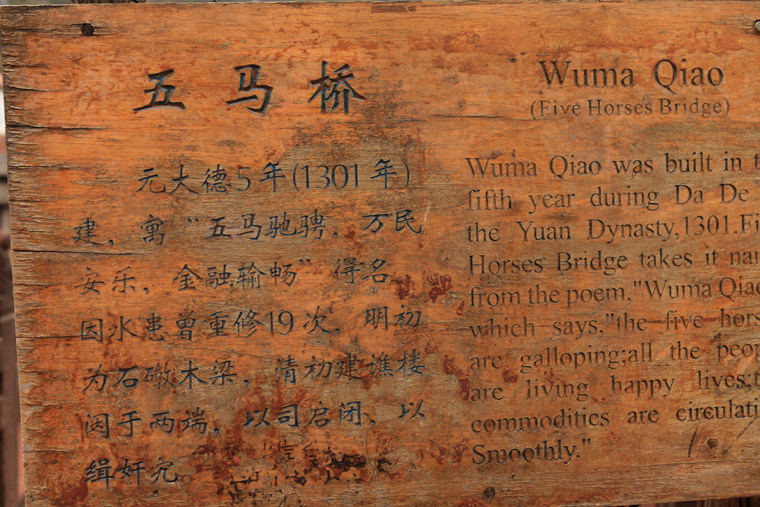 五马桥
元大德5年(1301年)
建，寓“五马驰骋，万民
安乐，金融输畅”得名。
因水患曾重修19次，明初
为石礅木梁，清初建谯楼
阙于两端，以司启闭，以
缉奸宄。
Wuma Qiao
(Five Horses Bridge)
Wuma Qiao was built in t
fifth year during Da De
the Yuan Dynasty,1301.Fi
Horses Bridge takes it nam
from the poem,"Wuma Qiao
which says,"the five hors
are galloping;all the peop
are living happy lives;t
commodities are circulati
Smoothly."